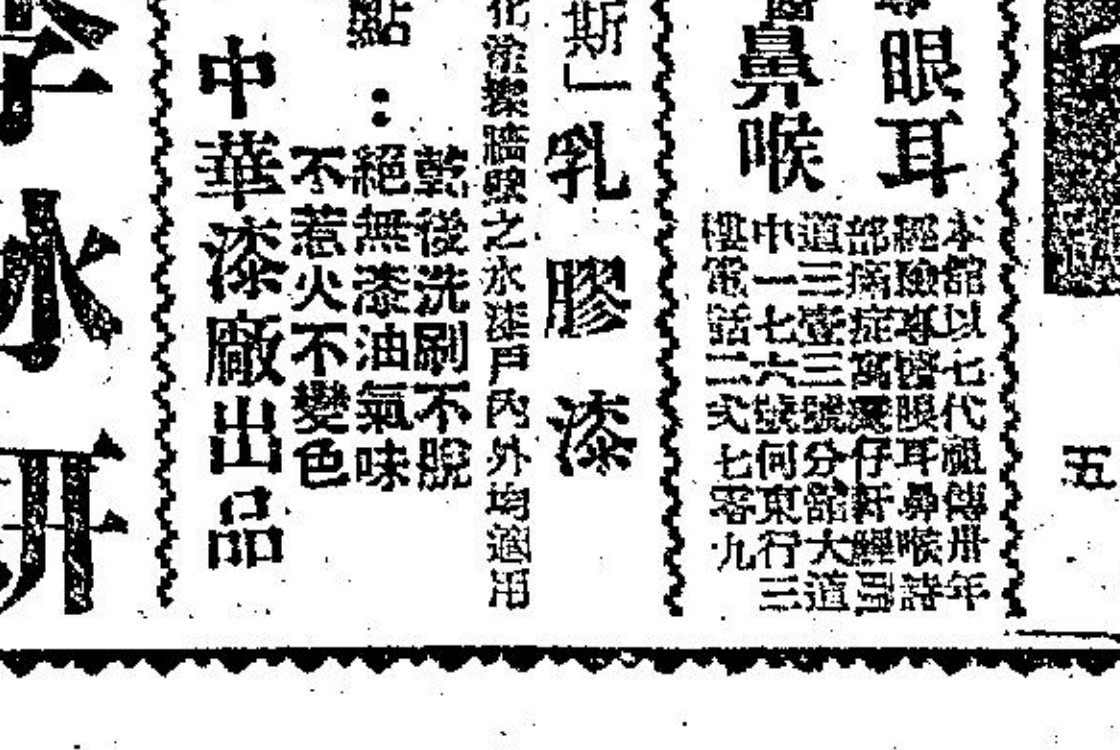 五
眼耳
鼻喉
本館以七代祖傳卅年
經驗專醫眼耳鼻喉諸
部痛症寓灣仔軒鯉詩
道三壹三號分館大道
中一七六號何東行三
樓電話二式七零九
斯」乳膠漆
化塗搽牆壁之水漆戶內外均適用
點：
乾後洗刷不脫
絕無漆油氣味
不惹火不變色
中華漆廠出品
水